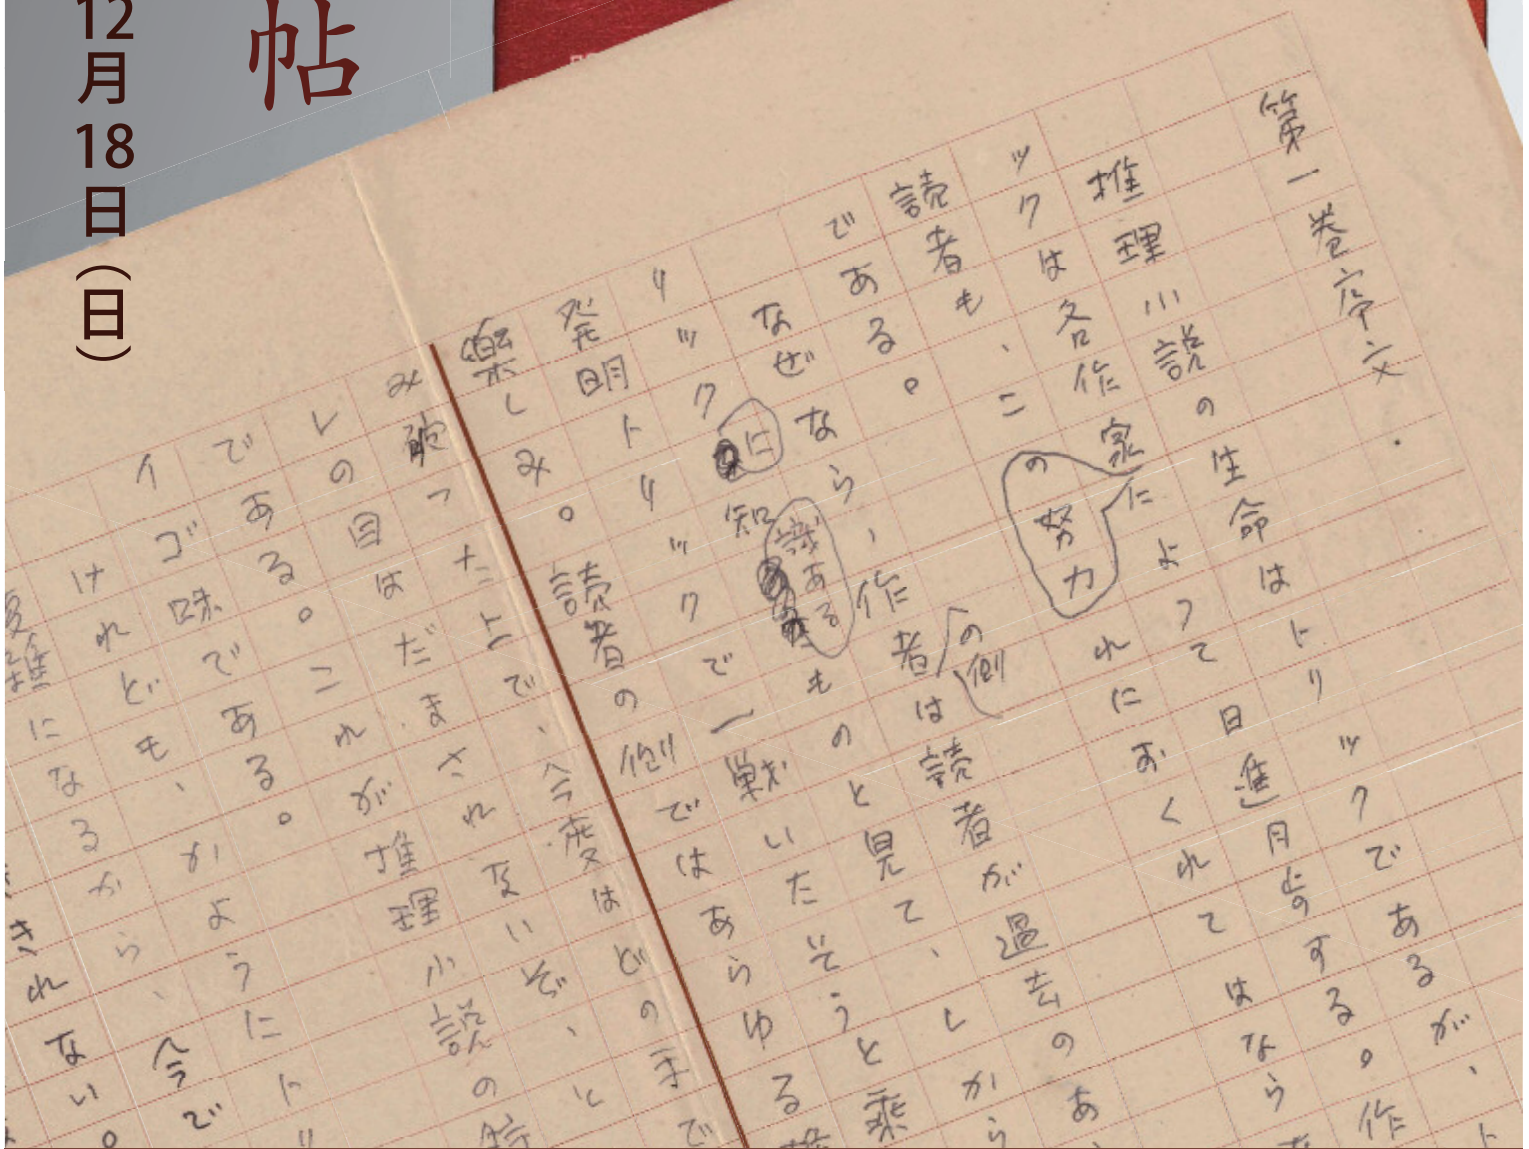 帖
12月18日（日）
第一巻序文.
推理小説の生命はトリックであるが、ト
ックは各作家の努力によって日進月歩する。作
読者も、これにおくれてはならな
である。
なぜなら、作者の側は読者が過去のあ
リックに知識あるものと見て、しから
発明トリックで一戦いたそうと乗
楽しみ。読者の側ではあらゆる
み破った上で、今度はどの手で
レの目はだまされないぞ、と
である。これが推理小説の特
イゴ味である。
けれども、かようにトリ
複雑になるから、今で
きれない。